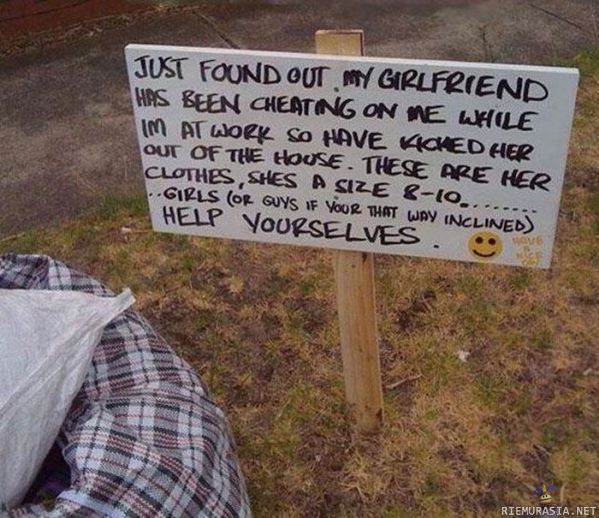 JUST FOUND OUT MY GIRLFRIEND
HAS BEEN CHEATING ON ME WHILE
IM AT WORK SO HAVE KICKED HER
OUT OF THE HOUSE. THESE ARE HER
CLOTHES, SHES A SIZE 8-10.........
..GIRLS (OR GUYS IF YOUR THAT WAY INCLINED)
HELP YOURSELVES.
HAVE
A
NICE
RIEMURASIA.NET